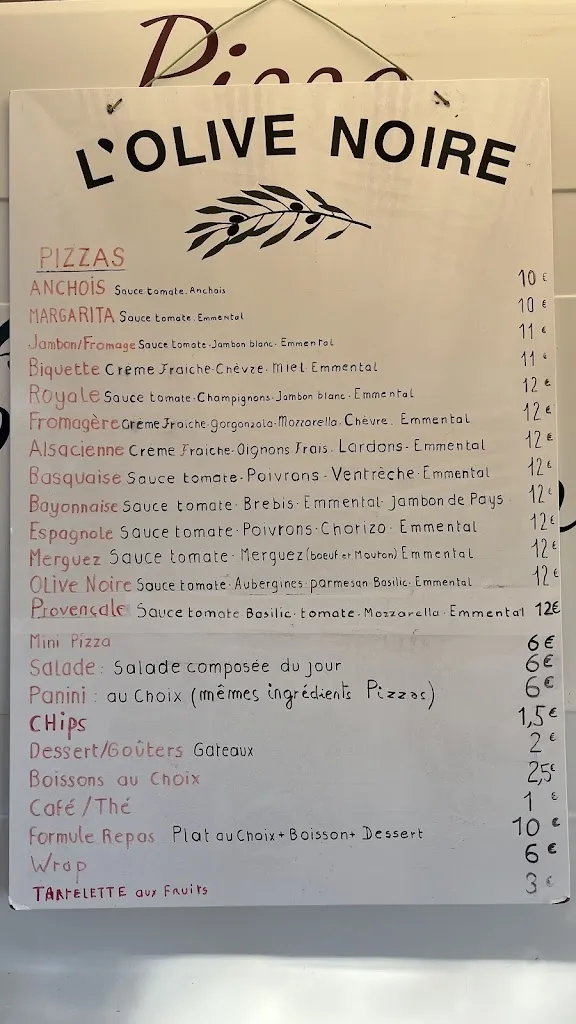 Pizza
L'OLIVE NOIRE
PIZZAS
ANCHOIS Sauce tomate. Anchois 10 €
MARGARITA Sauce tomate. Emmental 10 €
Jambon/Fromage Sauce tomate. Jambon blanc. Emmental 11 €
Biquette Crème Fraiche. Chèvre. Miel Emmental 11 €
Royale Sauce tomate. Champignons. Jambon blanc. Emmental 12 €
Fromagère crème Fraiche. gorgonzola. Mozzarella. Chèvre. Emmental 12 €
Alsacienne Crème Fraiche. Oignons Frais. Lardons. Emmental 12 €
Basquaise Sauce tomate. Poivrons. Ventrèche. Emmental 12 €
Bayonnaise Sauce tomate. Brebis. Emmental. Jambon de Pays 12 €
Espagnole Sauce tomate. Poivrons. Chorizo. Emmental 12 €
Merguez Sauce tomate. Merguez (boeuf et Mouton) Emmental 12 €
OLive Noire Sauce tomate. Aubergines. parmesan Basilic. Emmental 12 €
Provençale Sauce tomate Basilic. tomate. Mozzarella. Emmental 12€
Mini Pizza 6€
Salade: Salade composée du jour 6€
Panini: au Choix (mêmes ingrédients Pizzas) 6€
CHips 1,5€
Dessert/Goûters Gateaux 2 €
Boissons au Choix 2,5€
Café/Thé 1 €
Formule Repas Plat au Choix + Boisson + Dessert 10 €
Wrap 6 €
TARTELETTE aux Fruits 3 €